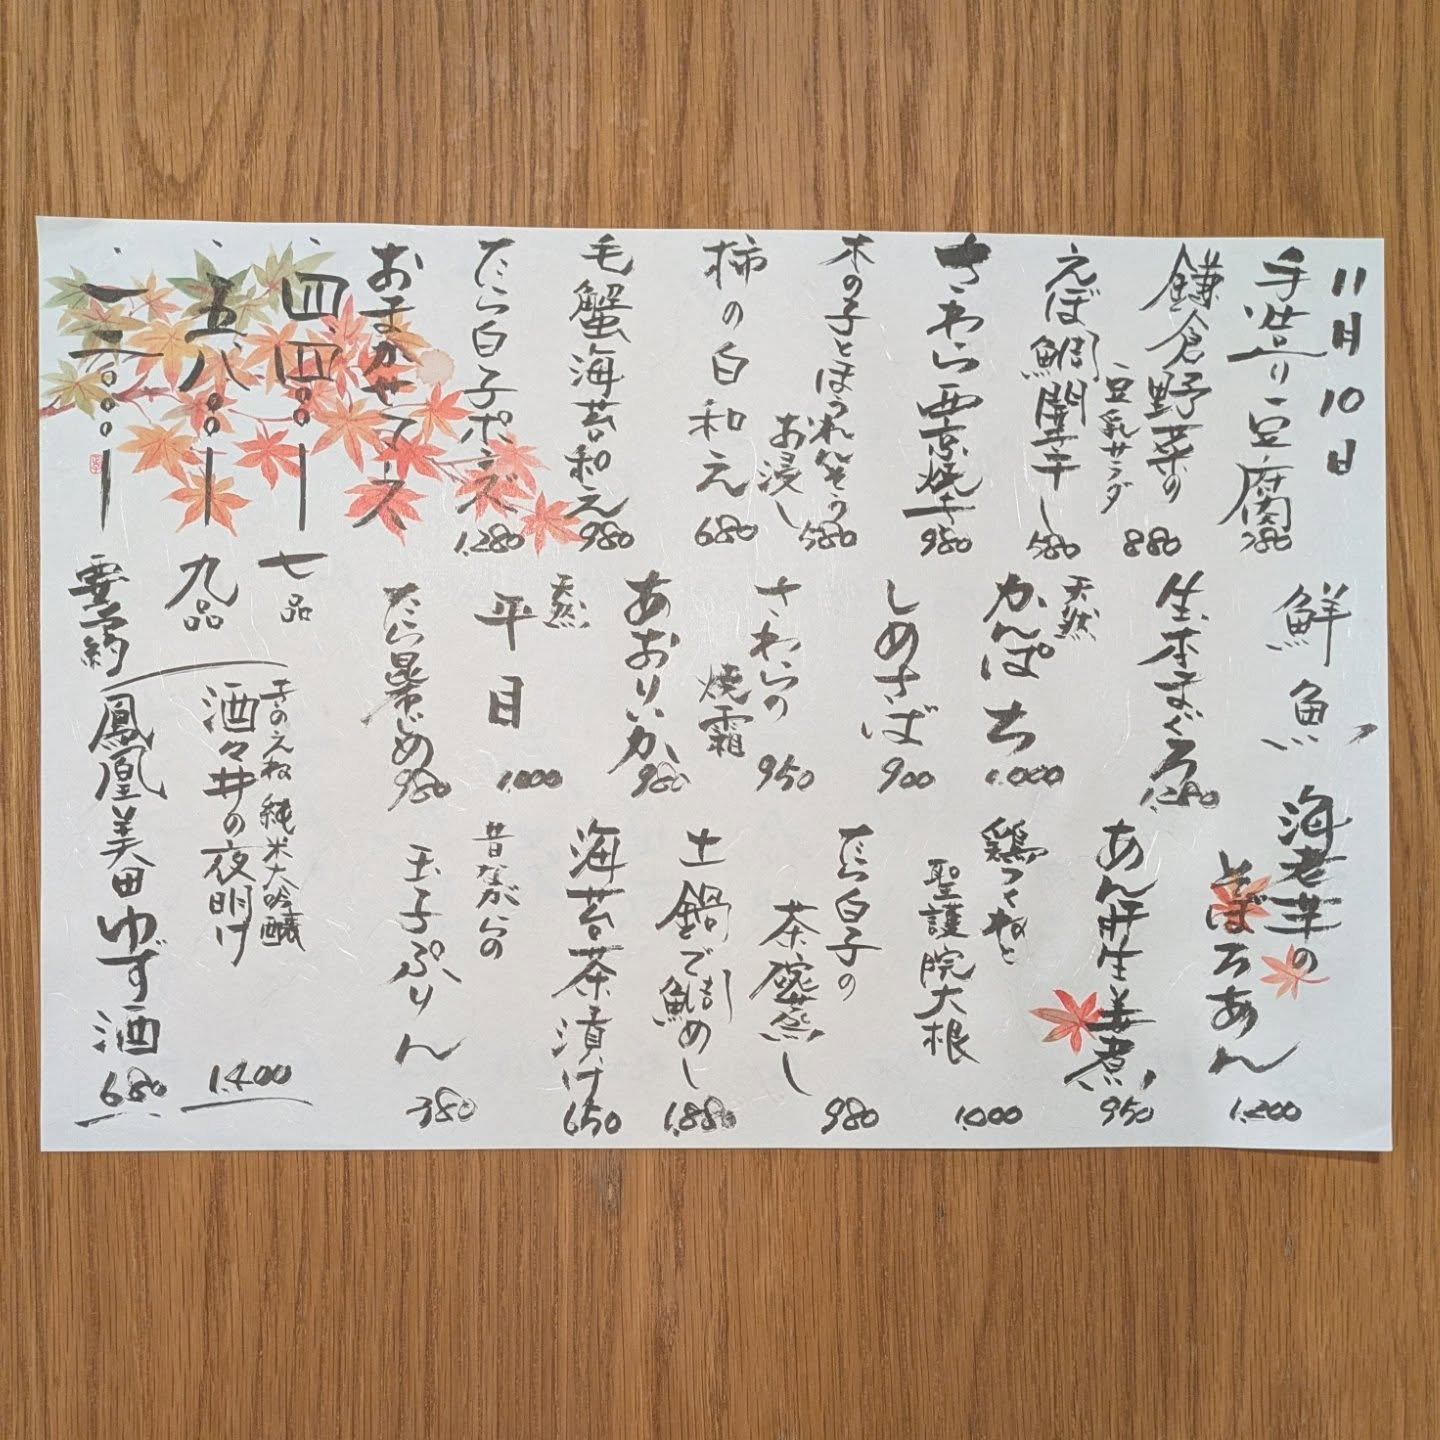 11月10日
手造り豆腐 780
鎌倉野菜の
豆乳サラダ 880
えぼ鯛開干し 580
さわら西京焼き 980
木の子とほうれんそう
お浸し 580
柿の白和え 680
毛蟹海苔和え 980
たら白子ポンズ 1,280
おまかせコース
、四、四〇〇ー 七品
、五、八〇〇ー 九品
、一二〇〇〇ー 要予約
鮮魚
生本まぐろ 1,280
天然
かんぱち 1,000
しめさば 900
さわらの
焼霜 950
あおりいか 980
天然
平目 1,000
たら昆布じめ 980
海老芋の
そぼろあん 1,200
あん肝生姜煮 950
鶏つくねと
聖護院大根 1,000
たら白子の
茶碗蒸し 980
土鍋で鯛めし 1,880
海苔茶漬け 650
昔ながらの
玉子ぷりん 380
きのえね純米大吟醸
酒々井の夜明け 1,400
鳳凰美田ゆず酒 680